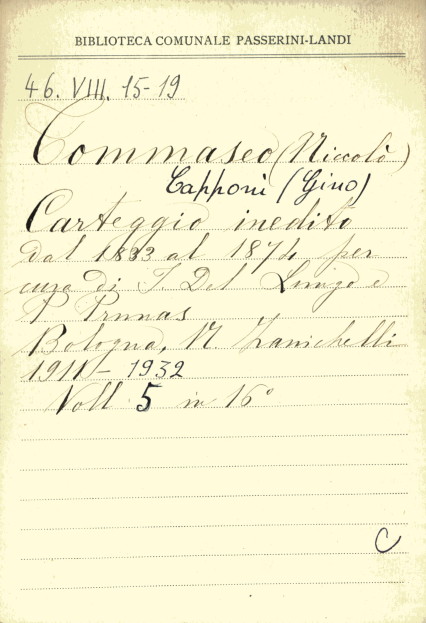 BIBLIOTECA COMUNALE PASSERINI-LANDI
46. VIII. 15-19
Tommaseo (Niccolò)
Capponi (Gino)
Carteggio inedito
dal 1833 al 1874 per
cura di I. Del Lungo e
P. Prunas
Bologna, N. Zanichelli
1911 - 1932
Voll 5 in 16°
C